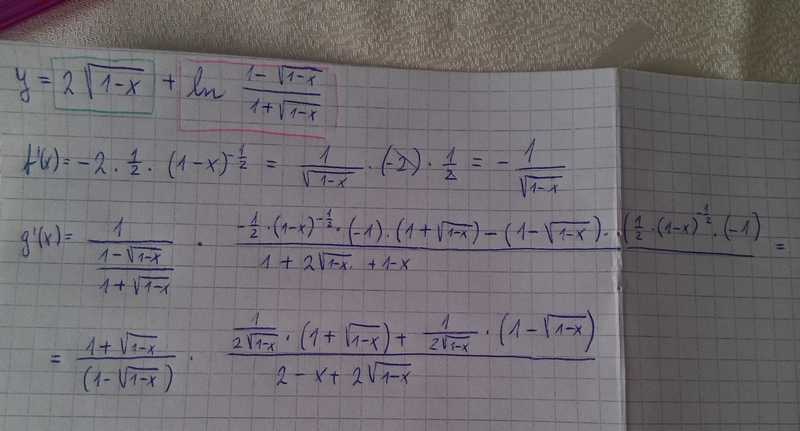 y = 2√(1-x) + ln (1-√(1-x))/(1+√(1-x))
f'(x) = -2 · 1/2 · (1-x)^(-1/2) = 1/√(1-x) · (-2) · 1/2 = - 1/√(1-x)
g'(x) = 1/((1-√(1-x))/(1+√(1-x))) · (-1/2 · (1-x)^(-1/2) · (-1) · (1+√(1-x)) - (1-√(1-x)) · (1/2 · (1-x)^(-1/2) · (-1))/(1 + 2√(1-x) + 1-x) =
= (1+√(1-x))/((1-√(1-x))) · (1/(2√(1-x)) · (1+√(1-x)) + 1/(2√(1-x)) · (1-√(1-x)))/(2 - x + 2√(1-x))